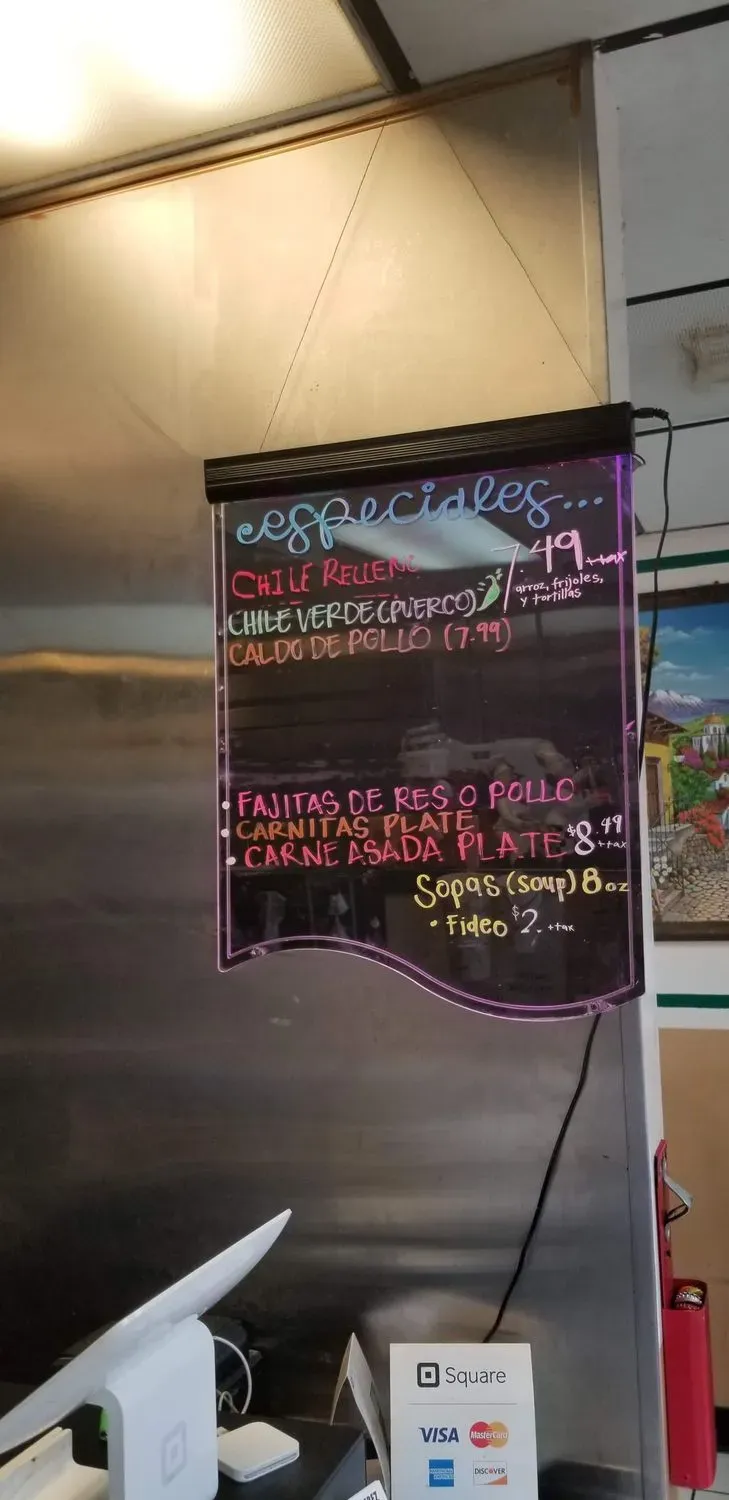 especiales...
CHILE RELLENO
7.49 +tax
arroz, frijoles,
y tortillas
CHILE VERDE (PUERCO)
CALDO DE POLLO (7.99)
• FAJITAS DE RES O POLLO
• CARNITAS PLATE
• CARNE ASADA PLATE $8.49
+tax
Sopas (soup) 8oz
• Fideo $2. +tax
Square
VISA MasterCard
AMERICAN EXPRESS DISCOVER